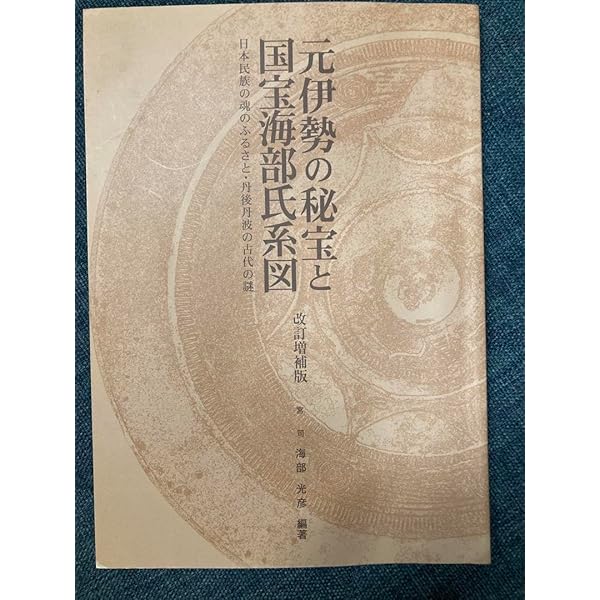 元伊勢の秘宝と
国宝海部氏系図
日本民族の魂のふるさと・丹後丹波の古代の謎
改訂増補版
宮司 海部光彦 編著